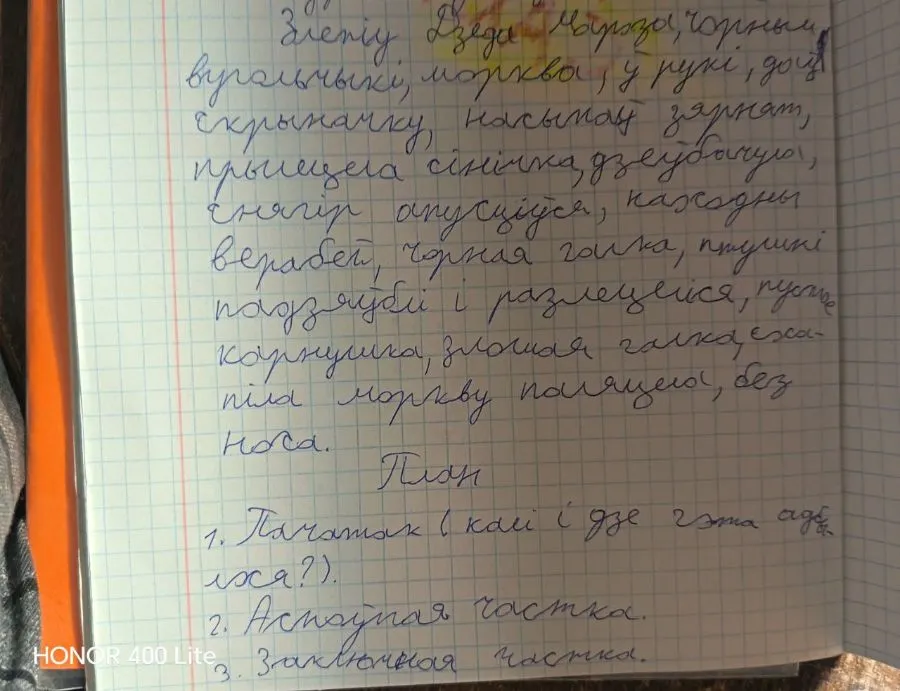 Зляпіў Дзеда Мароза, чорныя
вугольчыкі, морква, у рукі, даў
скрыначку, насыпаў зярнят,
прыляцела сінічка, дзеўбанула,
снягір апусціўся, находны
верабей, чорная галка, птушкі
падзяўблі і разляцеліся, пустое
кармушка, злошая галка, сха-
піла моркву паляцела, без
носа.
План
1. Пачатак (калі і дзе гэта адбы-
лося?).
2. Асноўная частка.
3. Заключная частка.
HONOR 400 Lite